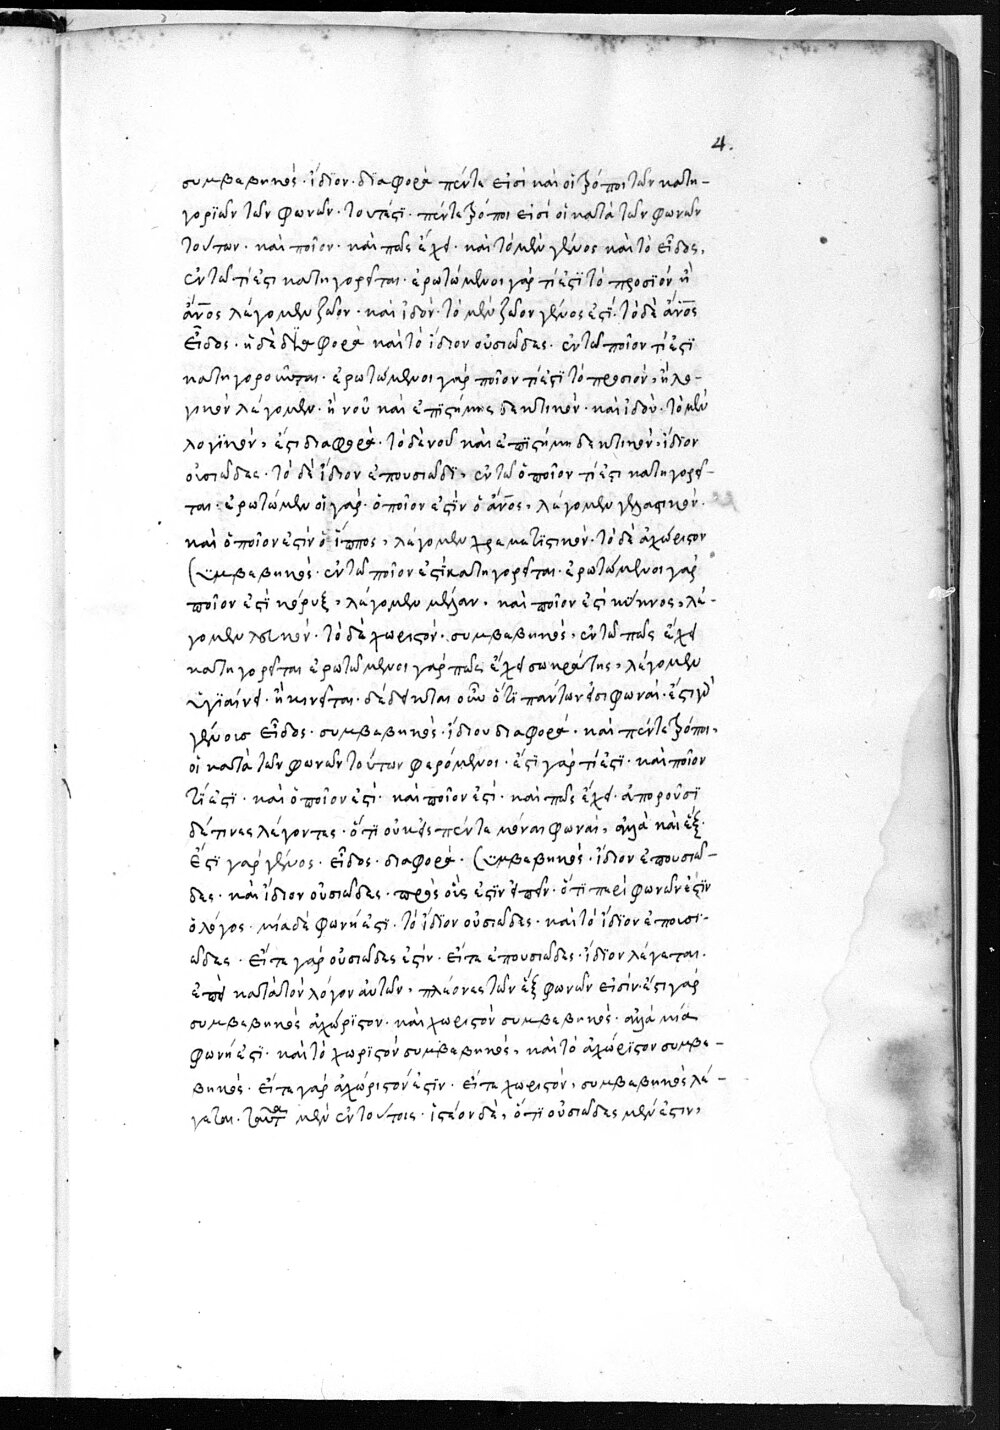 4.
συμβεβηκός · ἴδϊον · δϊαφορά πέντε εἰσὶ καὶ οἱ τρόποι τῶν κατη-
γορϊῶν τῶν φωνῶν · τουτέςϊ · πέντε τρόποι εἰσὶ οἱ κατὰ τῶν φωνῶν
τούτων · καὶ ποῖον · καὶ πῶς ἔχει · καὶ τὸ μὲν γένος καὶ τὸ εἶδος,
ἐν τῶ τί ἐςι κατηγορεῖται · ἐρωτώμενοι γὰρ τί ἐςϊ τὸ προσϊόν ἢ
ἄν̅ος λέγομεν ζῶον · καὶ ἰδού · τὸ μὲν ζῶον γένος ἐςί · τὸ δὲ ἄν̅ος
εἶδος · ἡ δὲ δϊαφορὰ καὶ τὸ ἴδιον οὐσιῶδες · ἐν τῶ ποῖον τί ἐςϊ
κατηγοροῦνται · ἐρωτώμενοι γὰρ ποῖον τί ἐςϊ τὸ προσιόν, ἢ λο-
γικὸν λέγομεν · ἢ νοῦ καὶ ἐπϊςήμης δεκτικόν · καὶ ἰδού · τὸ μὲν
λογϊκόν, ἐςι διαφορά · τὸ δὲ νοῦ καὶ ἐπϊςήμης δεκτικόν, ἴδϊον
οὐσιῶδες · τὸ δὲ ἴδιον ἐπουσιωδϊ, ἐν τῶ ὁποῖον τί ἐςι κατηγορεῖ-
ται · ἐρωτώμενοι γάρ · ὁποῖον ἐςϊν ὁ ἄν̅ος, λέγομεν γελαςικόν ·
καὶ ὁποῖον ἐςιν ὁ ἵππος, λέγομεν χρεματϊςικόν · τὸ δὲ ἀχώριςον
συμβεβηκός · ἐν τῶ ποῖον ἐςί κατηγορεῖται · ἐρωτώμενοι γὰρ
ποῖον ἐςϊ κόραξ, λέγομεν μέλαν · καὶ ποῖον ἐςι κύκνος, λέ-
γομεν λευκόν · τὸ δὲ χωριςόν · συμβεβηκός, ἐν τῶ πῶς ἔχει
κατηγορεῖται ἐρωτώμενοι γὰρ πῶς ἔχει σωκράτης, λέγομεν
ὑγϊαίνει · ἢ κινεῖται · δέδεικται οὖν ὅτϊ πέντε εἰσι φωναί · ἔςι γὰρ
γένος εἶδος · συμβεβηκός · ἴδιον διαφορά · καὶ πέντε τρόποι,
οἱ κατὰ τῶν φωνῶν τούτων φερόμενοι · ἔςι γὰρ τί ἐςϊ · καὶ ποῖον
τί ἐςϊ · καὶ ὁποῖον ἐςί · καὶ ποῖον ἐςί · καὶ πῶς ἔχει · ἀποροῦσϊ
δέ τινες λέγοντες · ὅτϊ οὐκ εἰσι πέντε μόναι φωναί, ἀλλὰ καὶ ἕξ ·
ἔςϊ γὰρ γένος · εἶδος · διαφορά · συμβεβηκός · ἴδιον ἐπουσιῶ-
δες · καὶ ἴδιον οὐσιῶδες · πρὸς οὕς ἐςϊν εἰπεῖν · ὅτϊ περὶ φωνῶν ἐςϊν
ὁ λόγος · μία δὲ φωνή ἐςϊ · τὸ ἴδϊον οὐσιῶδες · καὶ τὸ ἴδϊον ἐπουσϊ-
ῶδες · εἴτε γὰρ οὐσιῶδες ἐςίν · εἴτε ἐπουσιῶδες · ἴδϊον λέγεται ·
ἐπεὶ κατὰ τὸν λόγον αὐτῶν, πλέονες τῶν ἓξ φωνῶν εἰσίν · ἔςι γὰρ
συμβεβηκός ἀχώρϊςον · καὶ χωριςόν συμβεβηκός · ἀλλὰ μία
φωνή ἐςϊ · καὶ τὸ χωρϊςόν συμβεβηκός, καὶ τὸ ἀχώρϊςον συμβε-
βηκός · εἴτε γὰρ ἀχώριςόν ἐςϊν · εἴτε χωριςόν, συμβεβηκὸς λέ-
γεται · ταῦτα μὲν ἐν τούτοις · ἰςέον δέ, ὅτϊ οὐσιῶδες μέν ἐςιν,